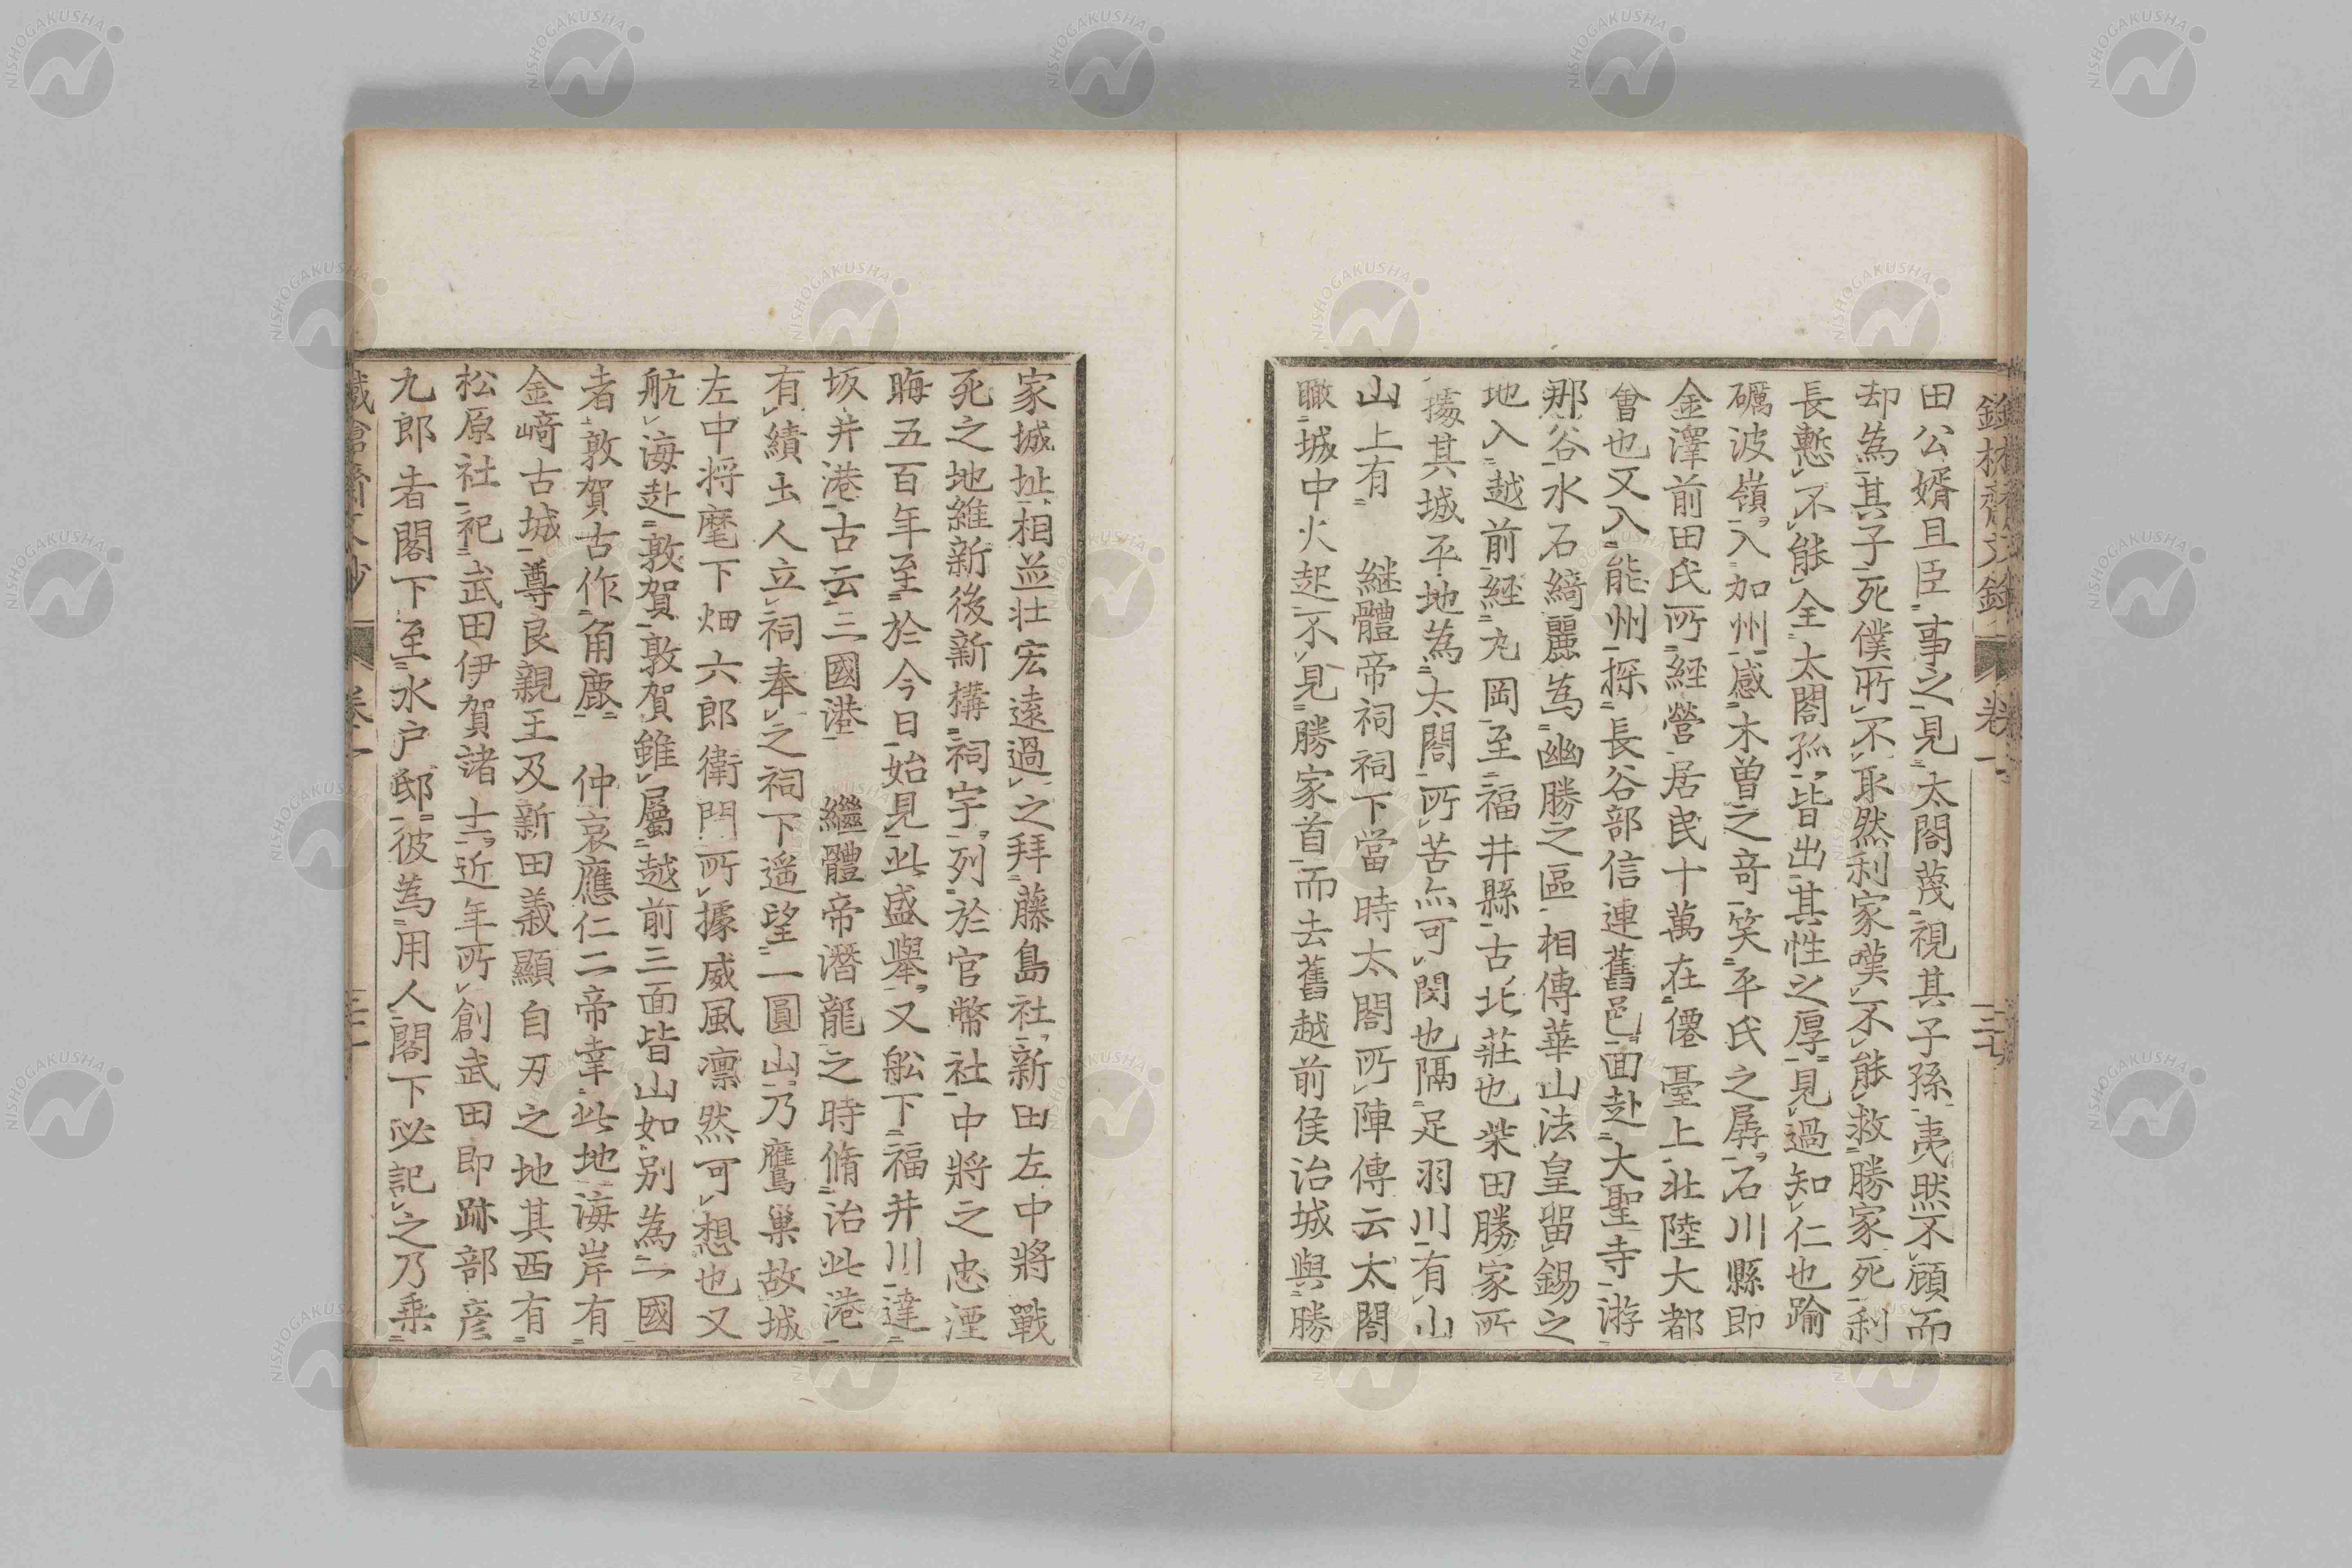 田公婿且臣事之見太閤蔑視其子孫夷然不顧而
却為其子死僕所不取然利家嘆不能救勝家死利
長慙不能全太閤孤皆出其性之厚見過知仁也踰
礪波嶺入加州感木曽之奇笑平氏之孱石川縣即
金澤前田氏所經營居民十萬在僊臺上北陸大都
會也又入能州探長谷部信連舊邑面赴大聖寺游
那谷水石綺麗為幽勝之區相傳華山法皇留錫之
地入越前經丸岡至福井縣古北莊也柴田勝家所
據其城平地為太閤所苦亦可閔也隔足羽川有山
山上有 継體帝祠祠下當時太閤所陣傳云太閤
瞰城中火起不見勝家首而去舊越前侯治城與勝
家城址相並壮宏遠過之拜藤島社新田左中將戰
死之地維新後新構祠宇列於官幣社中將之忠湮
晦五百年至於今日始見此盛擧又舩下福井川達
坂井港古云三國港 繼體帝潛龍之時脩治此港
有績土人立祠奉之祠下遥望一圓山乃鷹巢故城
左中将麾下畑六郎衛門所據威風凛然可想也又
航海赴敦賀敦賀雖屬越前三面皆山如別為一國
者敦賀古作角鹿 仲哀應仁二帝幸此地海岸有
金﨑古城尊良親王及新田義顯自刃之地其西有
松原社祀武田伊賀諸士近年所創武田即跡部彦
九郎者閣下至水户邸彼為用人閣下必記之乃乗
卷一
NISHOGAKUSHA